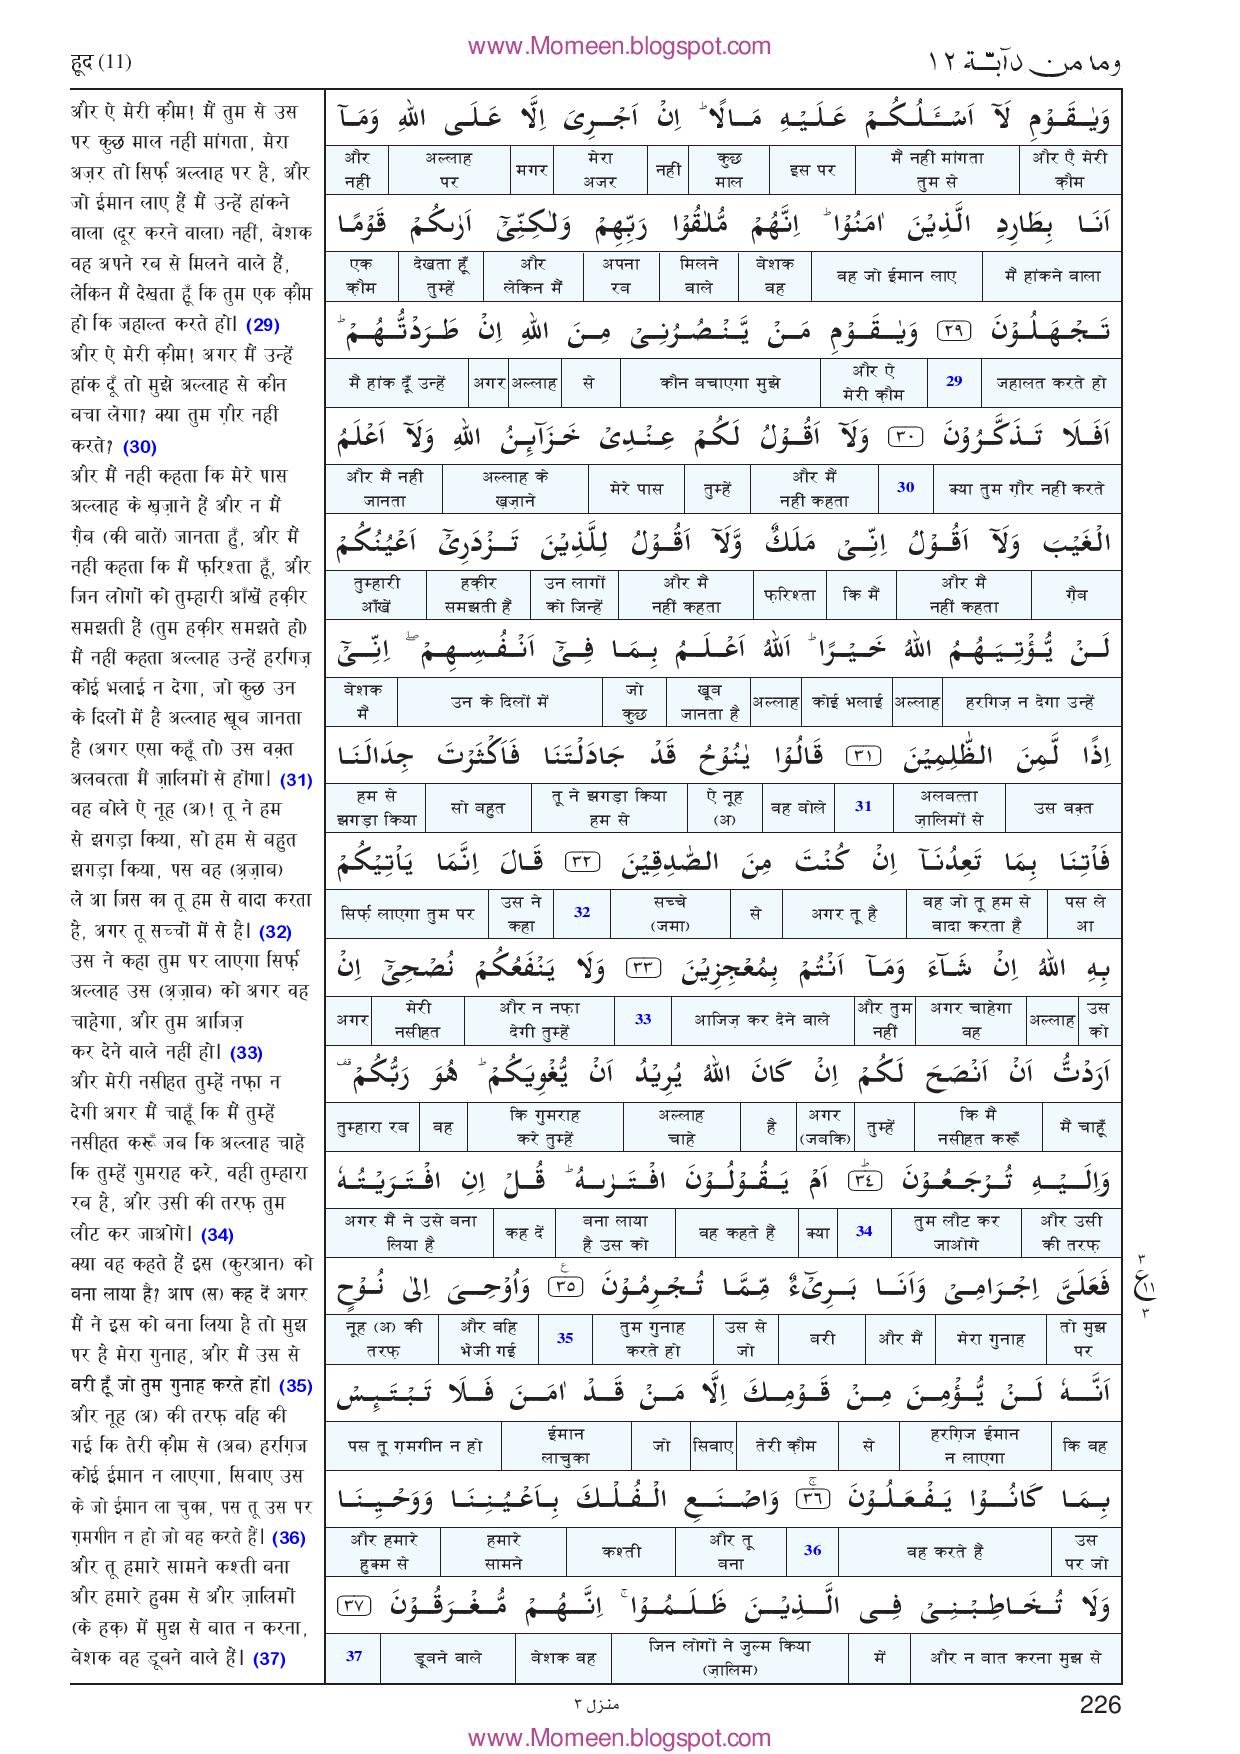 www.Momeen.blogspot.com
हूद (11)
وما من دآبّة ١٢
और ऐ मेरी क़ौम! मैं तुम से उस
पर कुछ माल नहीं मांगता, मेरा
अजर तो सिर्फ़ अल्लाह पर है, और
जो ईमान लाए हैं मैं उन्हें हांकने
वाला (दूर करने वाला) नहीं, बेशक
वह अपने रब से मिलने वाले हैं,
लेकिन मैं देखता हूँ कि तुम एक क़ौम
हो कि जहालत करते हो। (29)
और ऐ मेरी क़ौम! अगर मैं उन्हें
हांक दूँ तो मुझे अल्लाह से कौन
बचा लेगा? क्या तुम ग़ौर नहीं
करते? (30)
और मैं नहीं कहता कि मेरे पास
अल्लाह के ख़ज़ाने हैं और न मैं
ग़ैब (की बातें) जानता हुँ, और मैं
नहीं कहता कि मैं फ़रिश्ता हूँ, और
जिन लोगों को तुम्हारी आँखें हक़ीर
समझती हैं (तुम हक़ीर समझते हो)
मैं नहीं कहता अल्लाह उन्हें हरगिज़
कोई भलाई न देगा, जो कुछ उन
के दिलों में है अल्लाह खूब जानता
है (अगर एसा कहूँ तो) उस वक़्त
अलबत्ता मैं ज़ालिमों से होंगा। (31)
वह बोले ऐ नूह (अ)! तू ने हम
से झगड़ा किया, सो हम से बहुत
झगड़ा किया, पस वह (अ़ज़ाब)
ले आ जिस का तू हम से वादा करता
है, अगर तू सच्चों में से है। (32)
उस ने कहा तुम पर लाएगा सिर्फ़
अल्लाह उस (अ़ज़ाब) को अगर वह
चाहेगा, और तुम आजिज़
कर देने वाले नहीं हो। (33)
और मेरी नसीहत तुम्हें नफ़ा न
देगी अगर मैं चाहूँ कि मैं तुम्हें
नसीहत करूँ जब कि अल्लाह चाहे
कि तुम्हें गुमराह करे, वही तुम्हारा
रब है, और उसी की तरफ़ तुम
लौट कर जाओगे। (34)
क्या वह कहते हैं इस (कुरआन) को
बना लाया है? आप (स) कह दें अगर
मैं ने इस को बना लिया है तो मुझ
पर है मेरा गुनाह, और मैं उस से
बरी हूँ जो तुम गुनाह करते हो। (35)
और नूह (अ) की तरफ़ वहि की
गई कि तेरी क़ौम से (अब) हरगिज़
कोई ईमान न लाएगा, सिवाए उस
के जो ईमान ला चुका, पस तू उस पर
ग़मगीन न हो जो वह करते हैं। (36)
और तू हमारे सामने कश्ती बना
और हमारे हुक्म से और ज़ालिमों
(के हक़) में मुझ से बात न करना,
बेशक वह डूबने वाले हैं। (37)
وَيٰقَوْمِ لَآ اَسْـَٔلُكُمْ عَلَيْهِ مَالًا ؕ اِنْ اَجْرِىَ اِلَّا عَلَى اللهِ وَمَآ
और नहीं | अल्लाह पर | मगर | मेरा अजर | नहीं | कुछ माल | इस पर | मैं नहीं मांगता तुम से | और ऐ मेरी क़ौम
اَنَا بِطَارِدِ الَّذِيْنَ اٰمَنُوْا ؕ اِنَّهُمْ مُّلٰقُوْا رَبِّهِمْ وَلٰكِنِّىْٓ اَرٰىكُمْ قَوْمًا
एक क़ौम | देखता हूँ तुम्हें | और लेकिन मैं | अपना रब | मिलने वाले | बेशक वह | वह जो ईमान लाए | मैं हांकने वाला
تَجْهَلُوْنَ ٢٩ وَيٰقَوْمِ مَنْ يَّنْصُرُنِىْ مِنَ اللهِ اِنْ طَرَدْتُّهُمْ ؕ
मैं हांक दूँ उन्हें | अगर | अल्लाह | से | कौन बचाएगा मुझे | और ऐ मेरी क़ौम | 29 | जहालत करते हो
اَفَلَا تَذَكَّرُوْنَ ٣٠ وَلَآ اَقُوْلُ لَكُمْ عِنْدِىْ خَزَآئِنُ اللهِ وَلَآ اَعْلَمُ
और मैं नहीं जानता | अल्लाह के ख़ज़ाने | मेरे पास | तुम्हें | और मैं नहीं कहता | 30 | क्या तुम ग़ौर नहीं करते
الْغَيْبَ وَلَآ اَقُوْلُ اِنِّىْ مَلَكٌ وَّلَآ اَقُوْلُ لِلَّذِيْنَ تَزْدَرِىْٓ اَعْيُنُكُمْ
तुम्हारी आँखें | हक़ीर समझती हैं | उन लोगों को जिन्हें | और मैं नहीं कहता | फ़रिश्ता | कि मैं | और मैं नहीं कहता | ग़ैब
لَنْ يُّؤْتِيَهُمُ اللهُ خَيْرًا ؕ اَللهُ اَعْلَمُ بِمَا فِىْٓ اَنْفُسِهِمْ ۖ اِنِّىْٓ
बेशक मैं | उन के दिलों में | जो कुछ | खूब जानता है | अल्लाह | कोई भलाई | अल्लाह | हरगिज़ न देगा उन्हें
اِذًا لَّمِنَ الظّٰلِمِيْنَ ٣١ قَالُوْا يٰنُوْحُ قَدْ جَادَلْتَنَا فَاَكْثَرْتَ جِدَالَنَا
हम से झगड़ा किया | सो बहुत | तू ने झगड़ा किया हम से | ऐ नूह (अ) | वह बोले | 31 | अलबत्ता ज़ालिमों से | उस वक़्त
فَاْتِنَا بِمَا تَعِدُنَآ اِنْ كُنْتَ مِنَ الصّٰدِقِيْنَ ٣٢ قَالَ اِنَّمَا يَاْتِيْكُمْ
सिर्फ़ लाएगा तुम पर | उस ने कहा | 32 | सच्चे (जमा) | से | अगर तू है | वह जो तू हम से वादा करता है | पस ले आ
بِهِ اللهُ اِنْ شَآءَ وَمَآ اَنْتُمْ بِمُعْجِزِيْنَ ٣٣ وَلَا يَنْفَعُكُمْ نُصْحِىْٓ اِنْ
अगर | मेरी नसीहत | और न नफ़ा देगी तुम्हें | 33 | आजिज़ कर देने वाले | और तुम नहीं | अगर चाहेगा वह | अल्लाह | उस को
اَرَدْتُّ اَنْ اَنْصَحَ لَكُمْ اِنْ كَانَ اللهُ يُرِيْدُ اَنْ يُّغْوِيَكُمْ ؕ هُوَ رَبُّكُمْ قف
तुम्हारा रब | वह | कि गुमराह करे तुम्हें | अल्लाह चाहे | है | अगर (जबकि) | तुम्हें | कि मैं नसीहत करूँ | मैं चाहूँ
وَاِلَيْهِ تُرْجَعُوْنَ ؕ ٣٤ اَمْ يَقُوْلُوْنَ افْتَرٰىهُ ؕ قُلْ اِنِ افْتَرَيْتُهٗ
अगर मैं ने उसे बना लिया है | कह दें | बना लाया है उस को | वह कहते हैं | क्या | 34 | तुम लौट कर जाओगे | और उसी की तरफ़
فَعَلَىَّ اِجْرَامِىْ وَاَنَا بَرِىْٓءٌ مِّمَّا تُجْرِمُوْنَ ع ٣٥ وَاُوْحِىَ اِلٰى نُوْحٍ
٣ ع ١١ ٣
नूह (अ) की तरफ़ | और वहि भेजी गई | 35 | तुम गुनाह करते हो | उस से जो | बरी | और मैं | मेरा गुनाह | तो मुझ पर
اَنَّهٗ لَنْ يُّؤْمِنَ مِنْ قَوْمِكَ اِلَّا مَنْ قَدْ اٰمَنَ فَلَا تَبْتَئِسْ
पस तू ग़मगीन न हो | ईमान लाचुका | जो | सिवाए | तेरी क़ौम | से | हरगिज़ ईमान न लाएगा | कि वह
بِمَا كَانُوْا يَفْعَلُوْنَ ۚ ٣٦ وَاصْنَعِ الْفُلْكَ بِاَعْيُنِنَا وَوَحْيِنَا
और हमारे हुक्म से | हमारे सामने | कश्ती | और तू बना | 36 | वह करते हैं | उस पर जो
وَلَا تُخَاطِبْنِىْ فِى الَّذِيْنَ ظَلَمُوْا ۚ اِنَّهُمْ مُّغْرَقُوْنَ ٣٧
37 | डूबने वाले | बेशक वह | जिन लोगों ने जुल्म किया (ज़ालिम) | में | और न बात करना मुझ से
منزل ٣
226
www.Momeen.blogspot.com